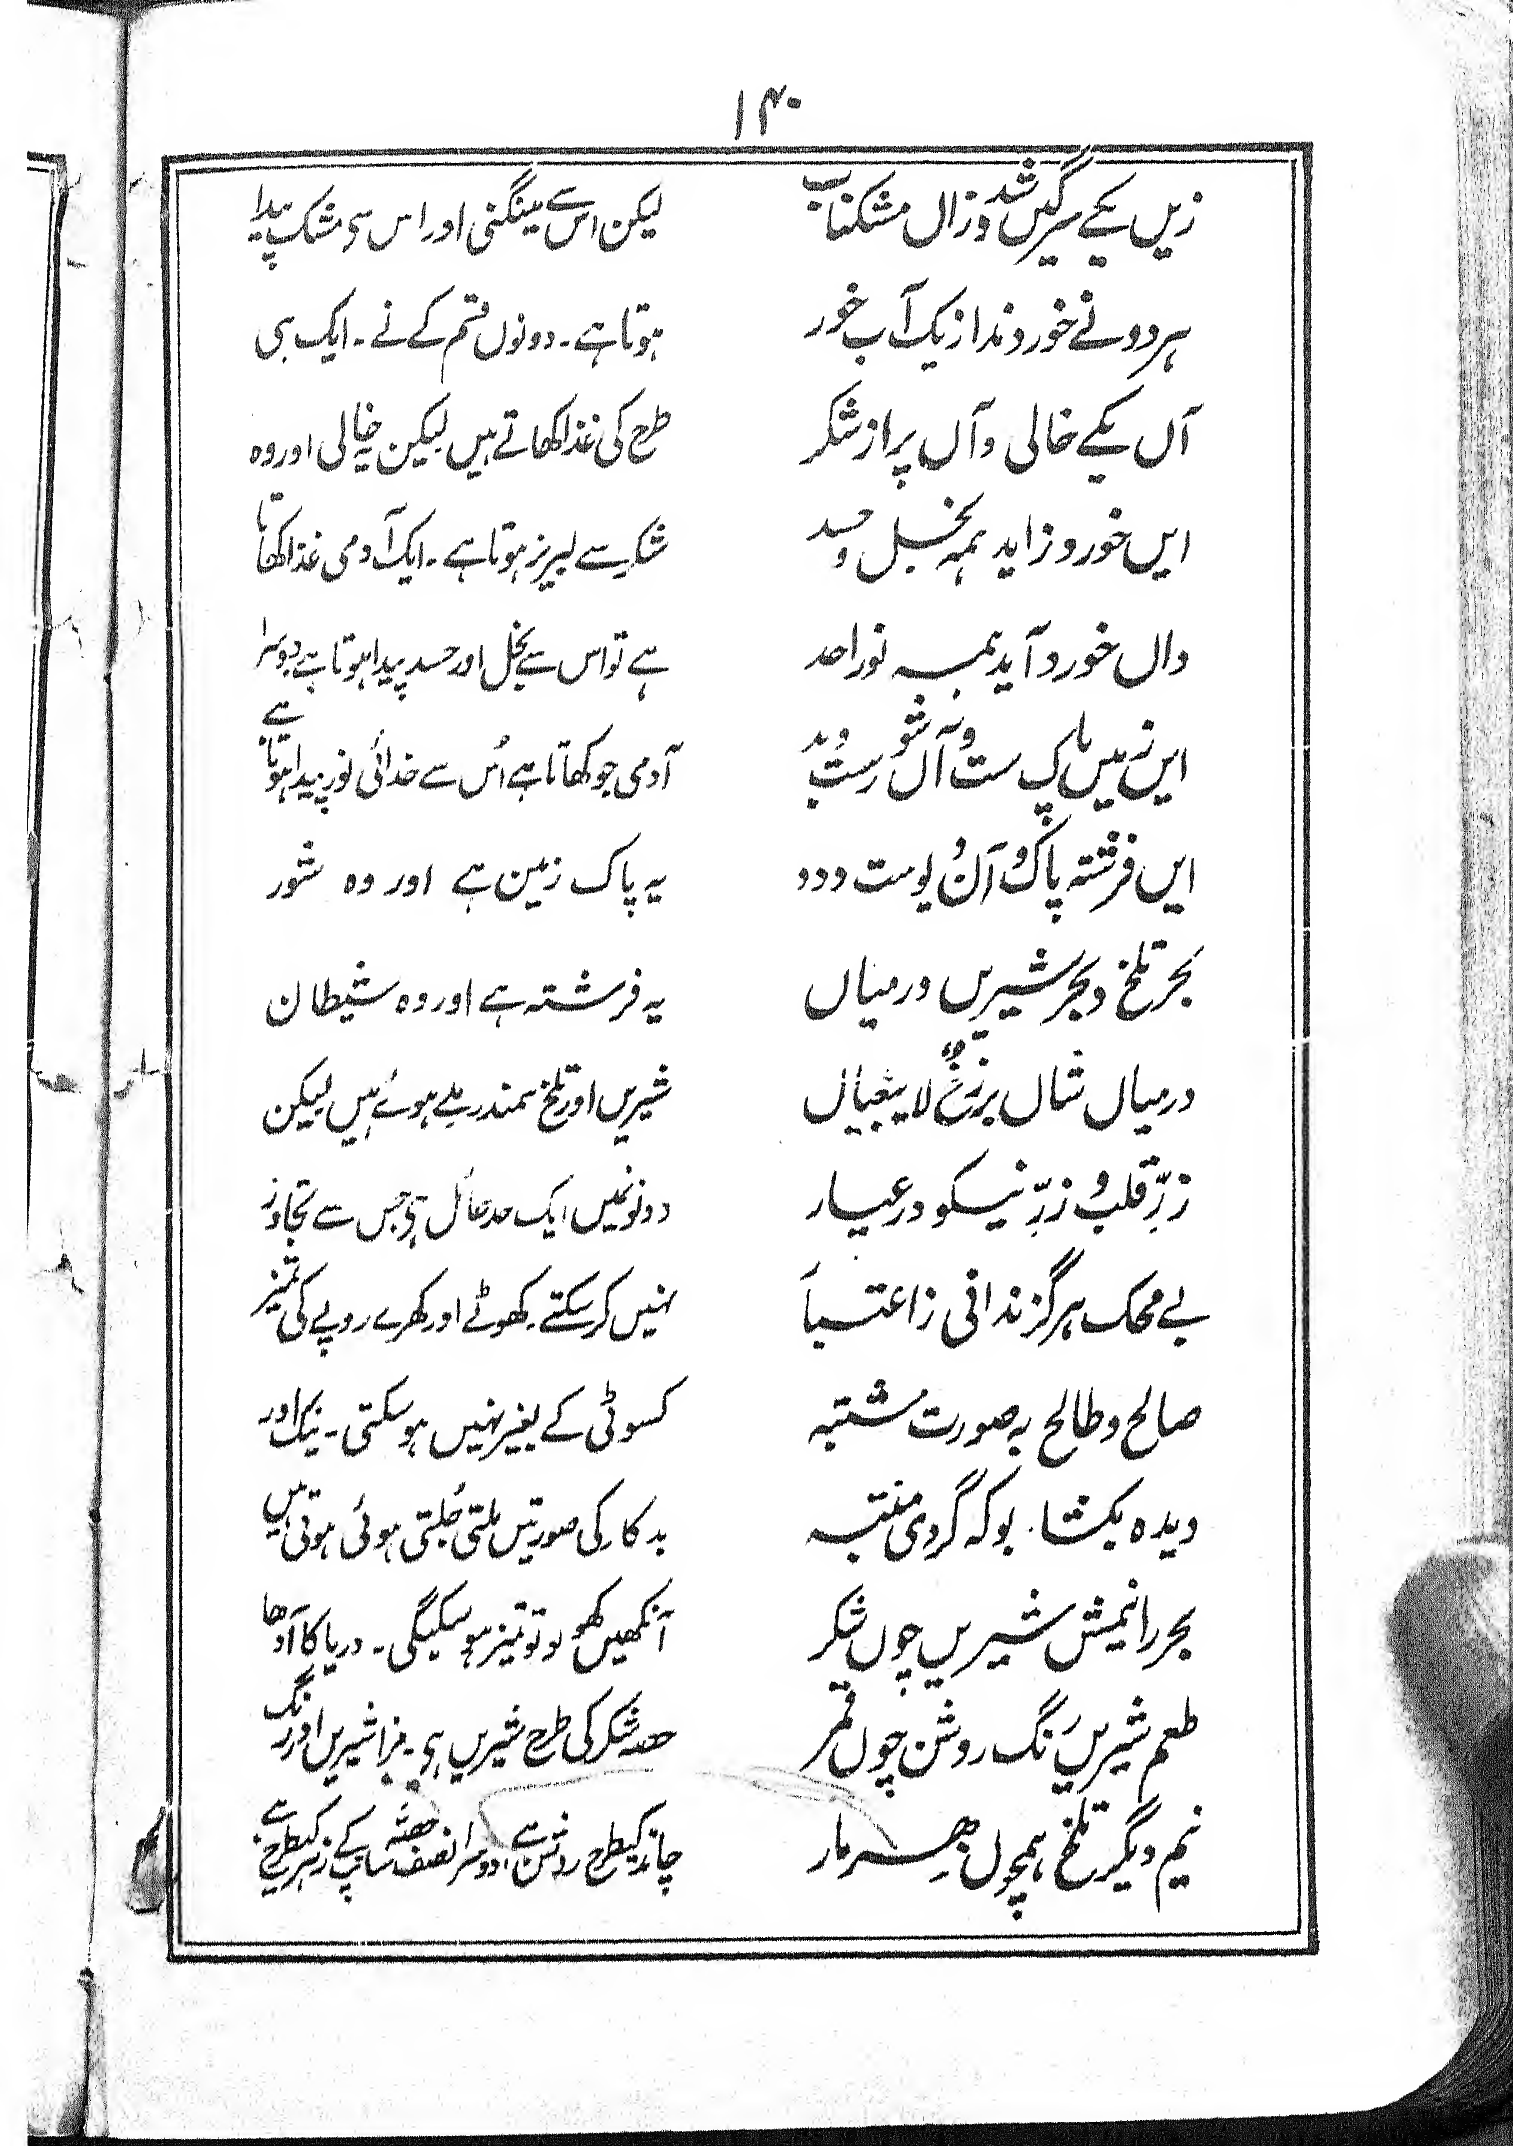 ۱۴۰
زیں یکے سرگیں شد و زاں مشکناب
ہر دو نے خوردند از یک آب خور
آں یکے خالی و آں پر از شکر
ایں خورد زاید ہمہ بخل و حسد
واں خورد آید ہمہ نور احد
ایں زمیں پاک ست و آں شورست و بد
ایں فرشتہ پاک و آں دیوست و دد
بحر تلخ و بحر شیریں درمیاں
درمیاں شاں برزخٌ لا یبغیاں
زرِّ قلب و زرِّ نیکو در عیار
بے محک ہرگز ندانی ز اعتبار
صالح و طالح بہ صورت مشتبہ
دیدہ بکشا۔ بو کہ گردی منتبہ
بحر را نیمش شیریں چوں شکر
طعم شیریں رنگ روشن چوں قمر
نیم دیگر تلخ ہمچوں زہر مار
لیکن اس سے مینگنی اور اس سی مشک پیدا
ہوتا ہے۔ دونوں قسم کے نے۔ ایک ہی
طرح کی غذا کھاتے ہیں لیکن یہ خالی اور وہ
شکر سے لبریز ہوتا ہے۔ ایک آدمی غذا کھاتا
ہے تو اس سے بخل اور حسد پیدا ہوتا ہے دوسرا
آدمی جو کھاتا ہے اُس سے خدائی نور پیدا ہوتا ہے
یہ پاک زمین ہے اور وہ شور
یہ فرشتہ ہے اور وہ شیطان
شیریں اور تلخ سمندر ملے ہوئے ہیں لیکن
دونوں میں ایک حد حائل ہی جس سے تجاوز
نہیں کر سکتے۔ کھوٹے اور کھرے روپے کی تمیز
کسوٹی کے بغیر نہیں ہو سکتی۔ نیک اور
بدکار کی صورتیں ملتی جُلتی ہوئی ہوتی ہیں
آنکھیں کھولو تو تمیز ہو سکیگی۔ دریا کا آدھا
حصہ شکر کی طرح شیریں ہی۔ مزا شیریں اور رنگ
چاند کیطرح روشن ہے، دوسرا نصف حصّہ سانپ کے زہر کیطرح ہے۔